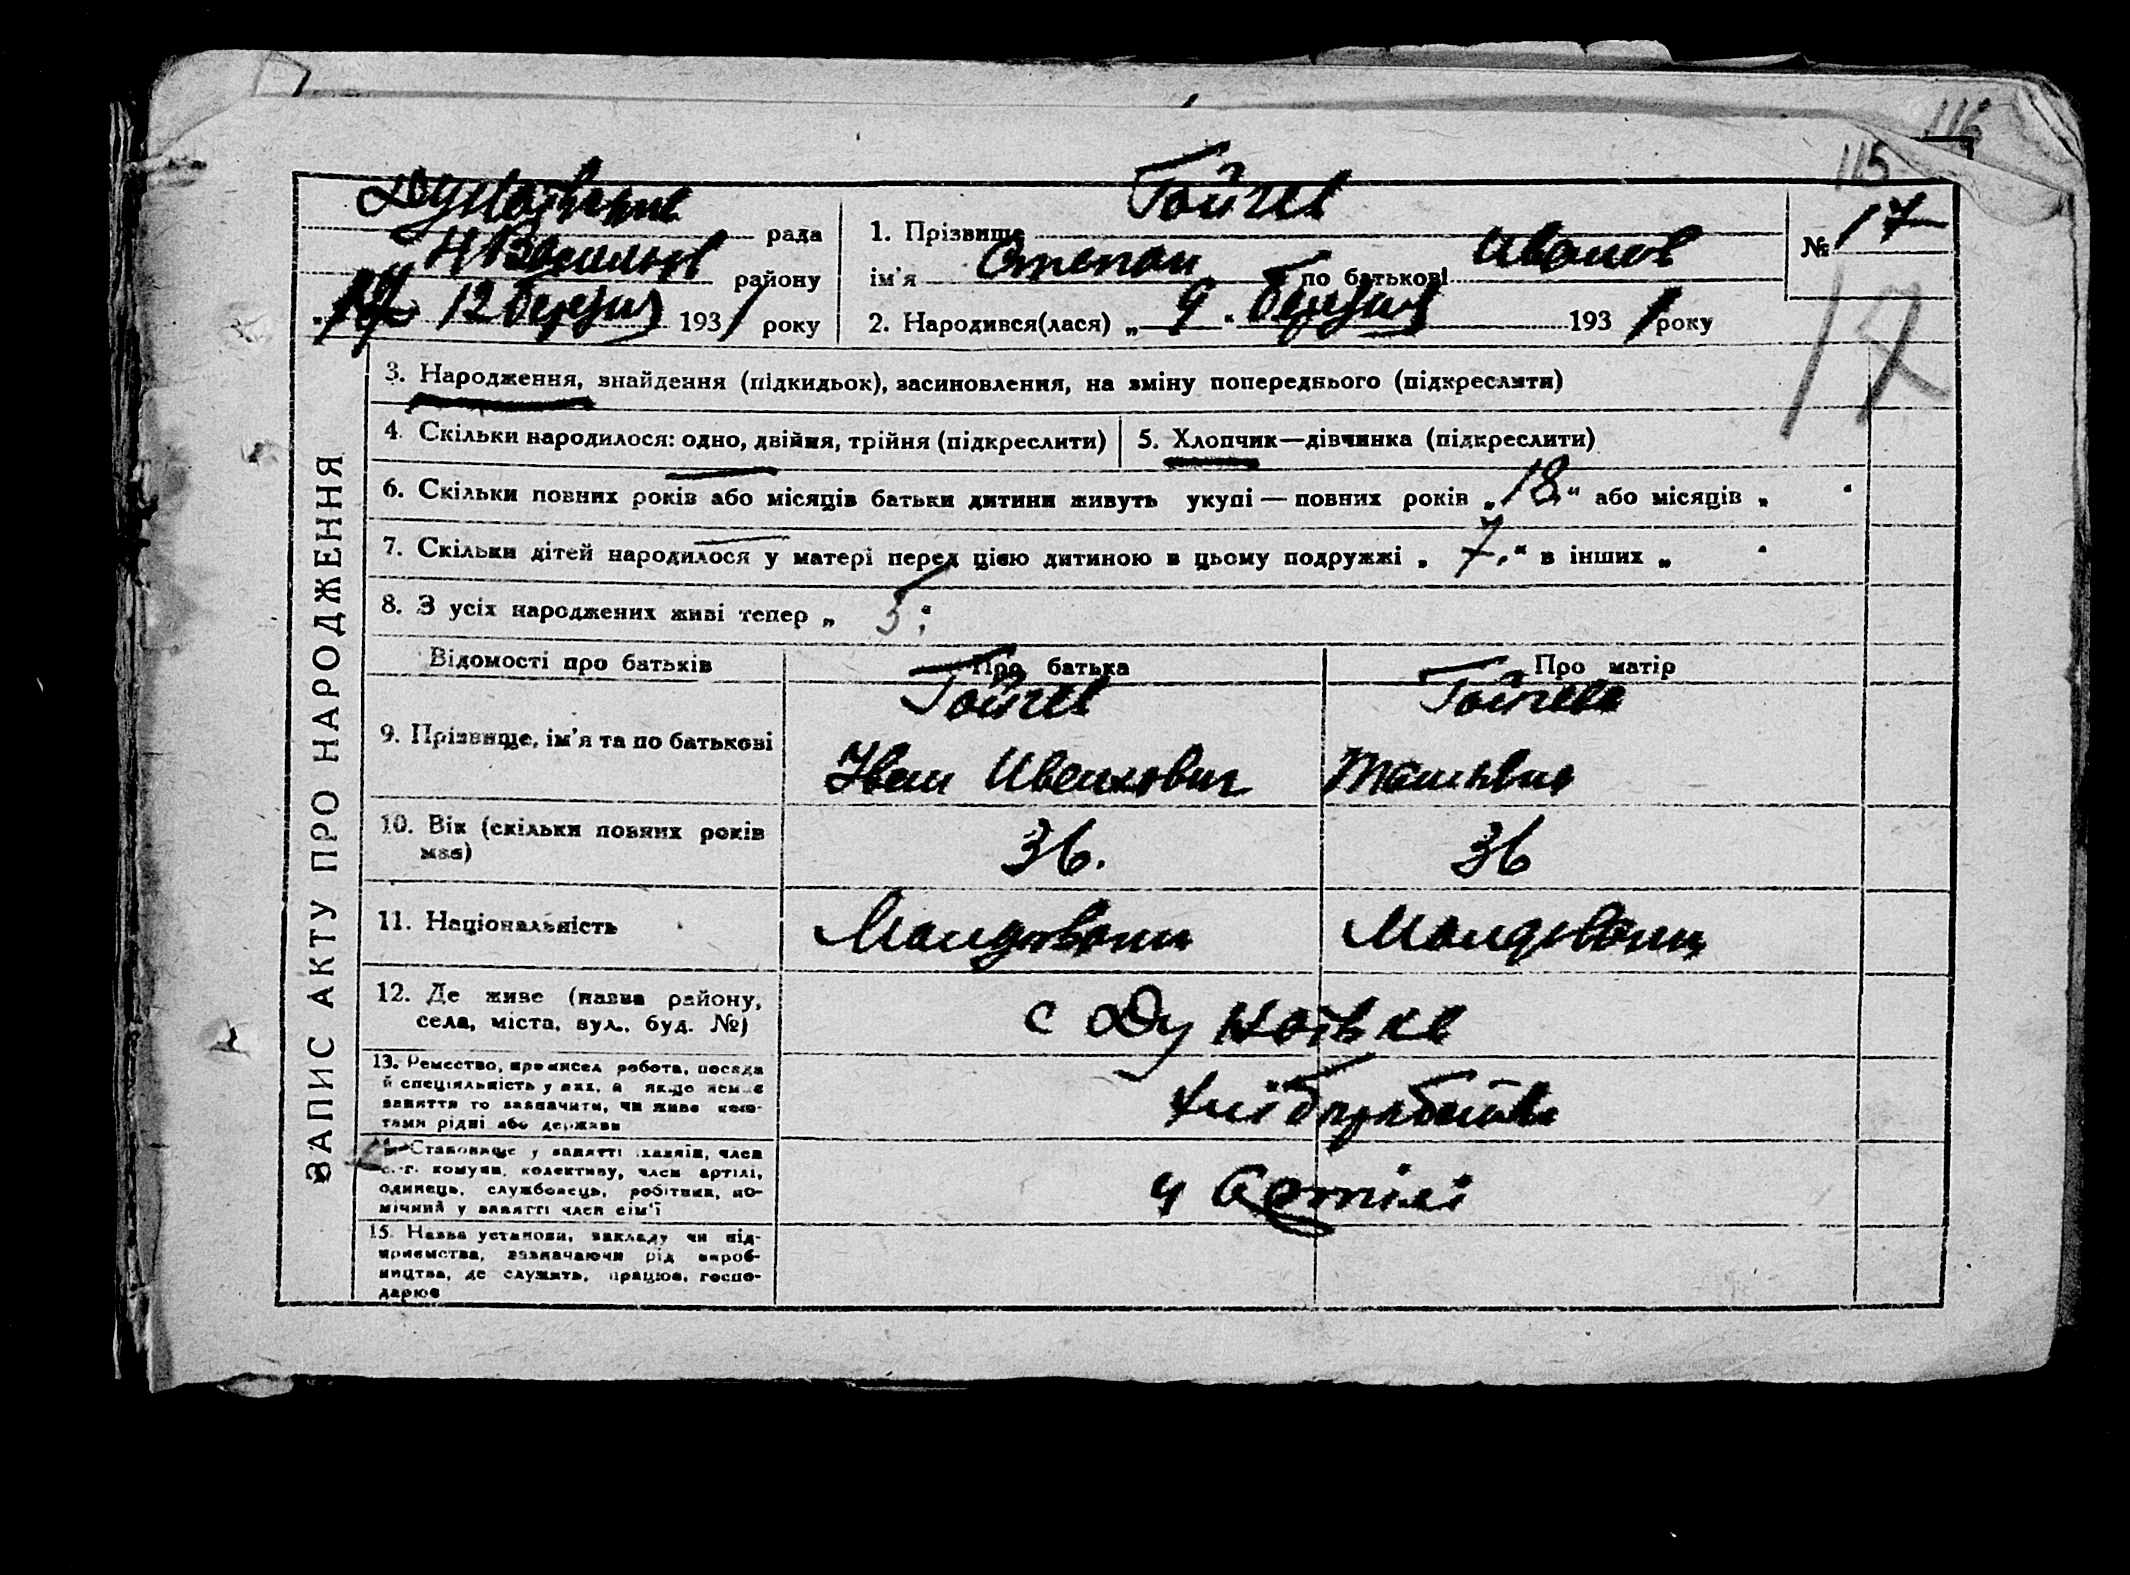 116
115
Дунаївська рада
Н Васильев району
12 березня 1931 року
1. Прізвище Гойчев
ім'я Степан по батькові Иванов
2. Народився(лася) „ 9 “ березня 1931 року
№ 17
17
ЗАПИС АКТУ ПРО НАРОДЖЕННЯ
3. Народження, знайдення (підкидьок), засиновлення, на зміну попереднього (підкреслити)
4. Скільки народилося: одно, двійня, трійня (підкреслити)
5. Хлопчик—дівчинка (підкреслити)
6. Скільки повних років або місяців батьки дитини живуть укупі — повних років „ 18 “ або місяців „ “
7. Скільки дітей народилося у матері перед цією дитиною в цьому подружжі „ 7. “ в інших „ “
8. З усіх народжених живі тепер „ 5 “
Відомості про батьків
Про батька
Про матір
9. Прізвище, ім'я та по батькові
Гойчев
Іван Иванович
Гойчева
10. Вік (скільки повних років
має)
36.
36
11. Національність
Молдовани
Молдовани
12. Де живе (назва району,
села, міста, вул., буд. №)
с Дунаївка
13. Ремество, промисел робота, посада
й спеціяльність у них, а якщо немає
заняття то зазначити, чи живе кош-
тами рідні або держави
хліборобство
14. Становище у занятті хазяїн, член
с.-г. комуни, колективу, член артілі,
одинець, службовець, робітник, по-
мічний у занятті член сім'ї
у Артілі
15. Назва установи, закладу чи під-
приємства, зазначаючи рід вироб-
ництва, де служить, працює, госпо-
дарює